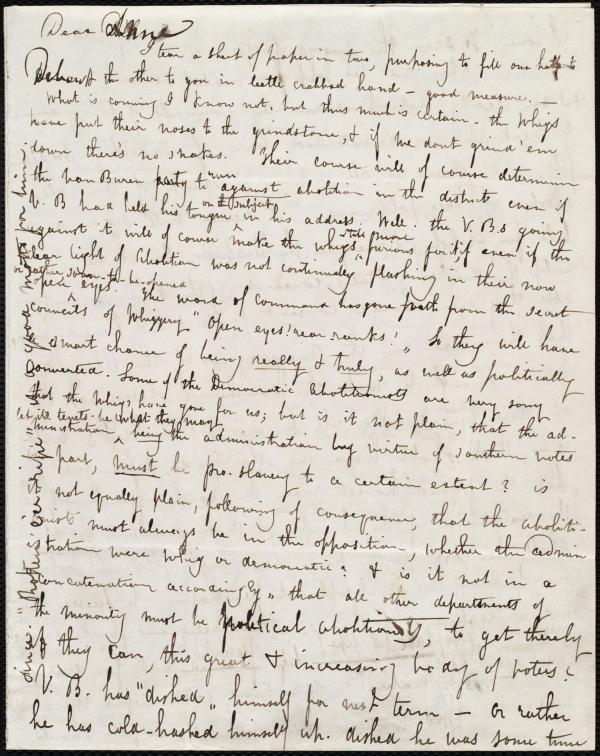 Dear Anne
I tear a sheet of paper in two, purposing to fill one half to
Deborah & the other to you in little crabbed hand – good measure. —
What is coming I know not, but thus much is certain – the Whigs
have put their noses to the grindstone, & if we dont grind 'em
down there's no snakes. Their course will of course determin
the Van Buren party to run against abolition in the districts even if
V. B had held his tongue on the subject in his address. Well. the V. B.s going
against it will of course make the whigs still more furious for it if even if the
clear light of Abolition was not continually flashing in their now
open eyes rather, soon-to-be-opened
The word of command has gone forth from the secret
councils of Whiggery "Open eyes! rear ranks!" So they will have
a smart chance of being really & truly, as well as politically
converted. Some of the Democratic Abolitionists are very sorry
that the whigs have gone for us; but is it not plain, that the ad-
ministration let its tenets be what they may, being the administration by virtue of southern votes
part, must be pro-slavery to a certain extent? is
it not equally plain, following of consequence, that the aboliti-
onists must always be in the opposition, whether the admin
istration were whig or democratic? & is it not in a
"concatenation accordingly" that all other departments of
the minority must be political abolitionists, to get thereby
if they can, this great & increasing body of voters?
V. B. has "dished" himself for next term — or rather
he has cold-hashed himself up. dished he was some time